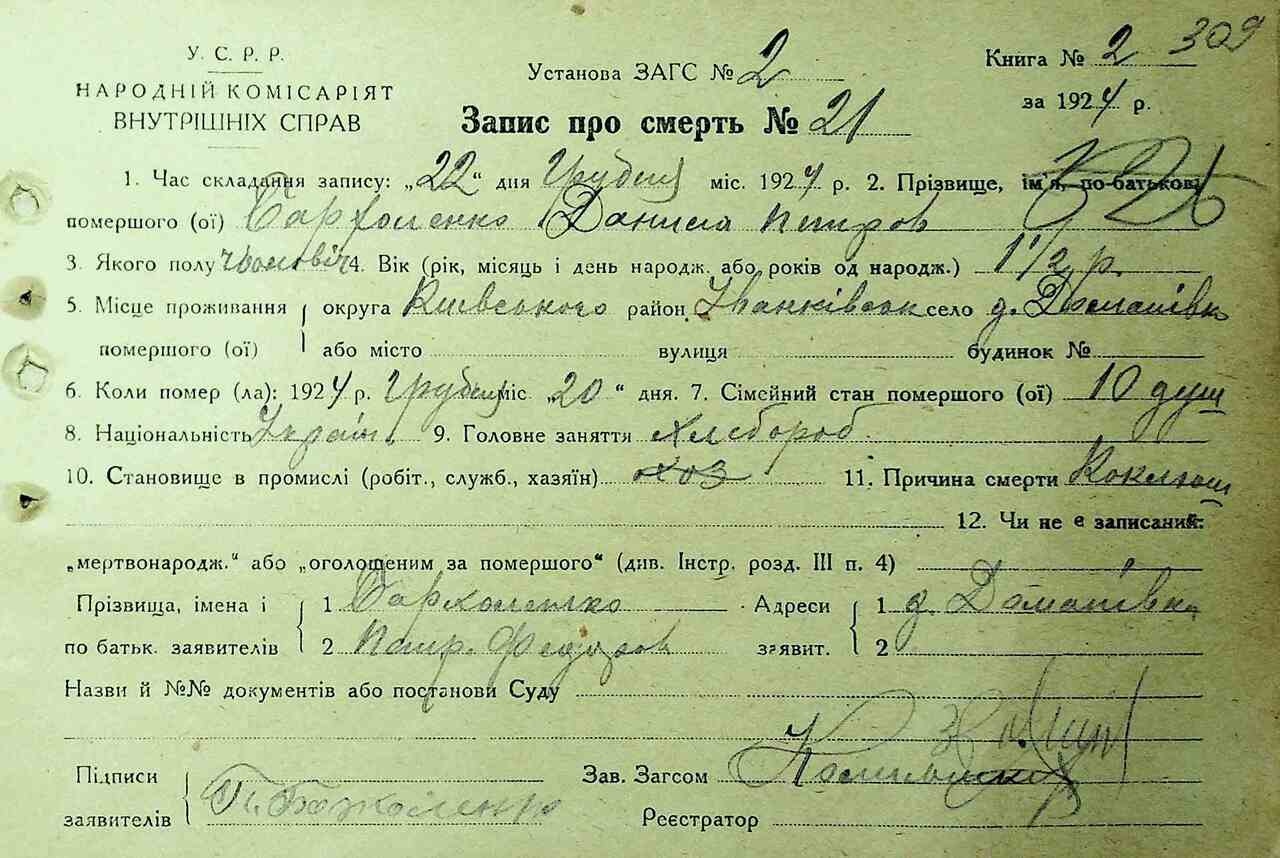 309
У. С. Р. Р.
НАРОДНІЙ КОМІСАРІЯТ
ВНУТРІШНІХ СПРАВ
Установа ЗАГС № 2
Книга № 2
за 1924 р.
Запис про смерть № 21
1. Час складання запису: „22“ дня Грудня міс. 1924 р. 2. Прізвище, ім'я, по-батькові
помершого (ої) Данила Петров
3. Якого полу чоловіч 4. Вік (рік, місяць і день народж. або років од народж.) 1 1/2 р.
5. Місце проживання округа Київського район Іванківськ село д. Доманівка
помершого (ої) або місто вулиця будинок №
6. Коли помер (ла): 1924 р. Грудня міс. „20“ дня. 7. Сімейний стан помершого (ої) 10 душ
8. Національність Україн. 9. Головне заняття хлебороб.
10. Становище в промислі (робіт., служб., хазяїн) хоз 11. Причина смерти Коклюш
12. Чи не є записаний:
„мертвонародж.“ або „оголошеним за помершого“ (див. Інстр. розд. III п. 4)
Прізвища, імена і 1 Адреси 1 д. Доманівка
по батьк. заявителів 2 Петр. Федоров заявит. 2
Назви й №№ документів або постанови Суду
Підписи Зав. Загсом
заявителів Реєстратор